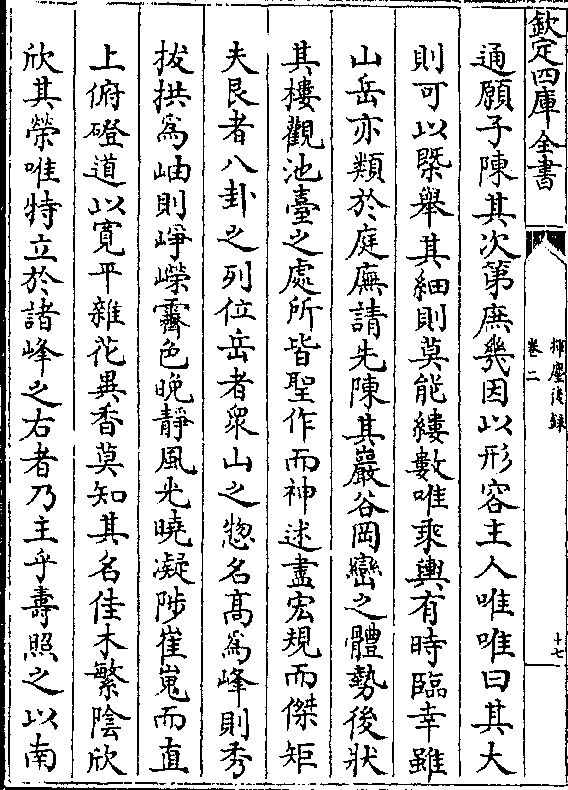 欽定四庫全書
揮麈後録
卷二
十七
通願子陳其次第庶幾因以形容主人唯唯曰其大
則可以槩舉其細則莫能縷數唯乘輿有時臨幸雖
山岳亦類於庭廡請先陳其巖谷岡巒之體勢後狀
其樓觀池臺之處所皆聖作而神述盡宏規而傑矩
夫艮者八卦之列位岳者衆山之惣名髙爲峰則秀
拔拱爲岫則崢嶸霽色晩靜風光曉凝陟崔嵬而直
上俯磴道以寛平雜花異香莫知其名佳木繁陰欣
欣其榮唯特立於諸峰之右者乃主乎壽照之以南